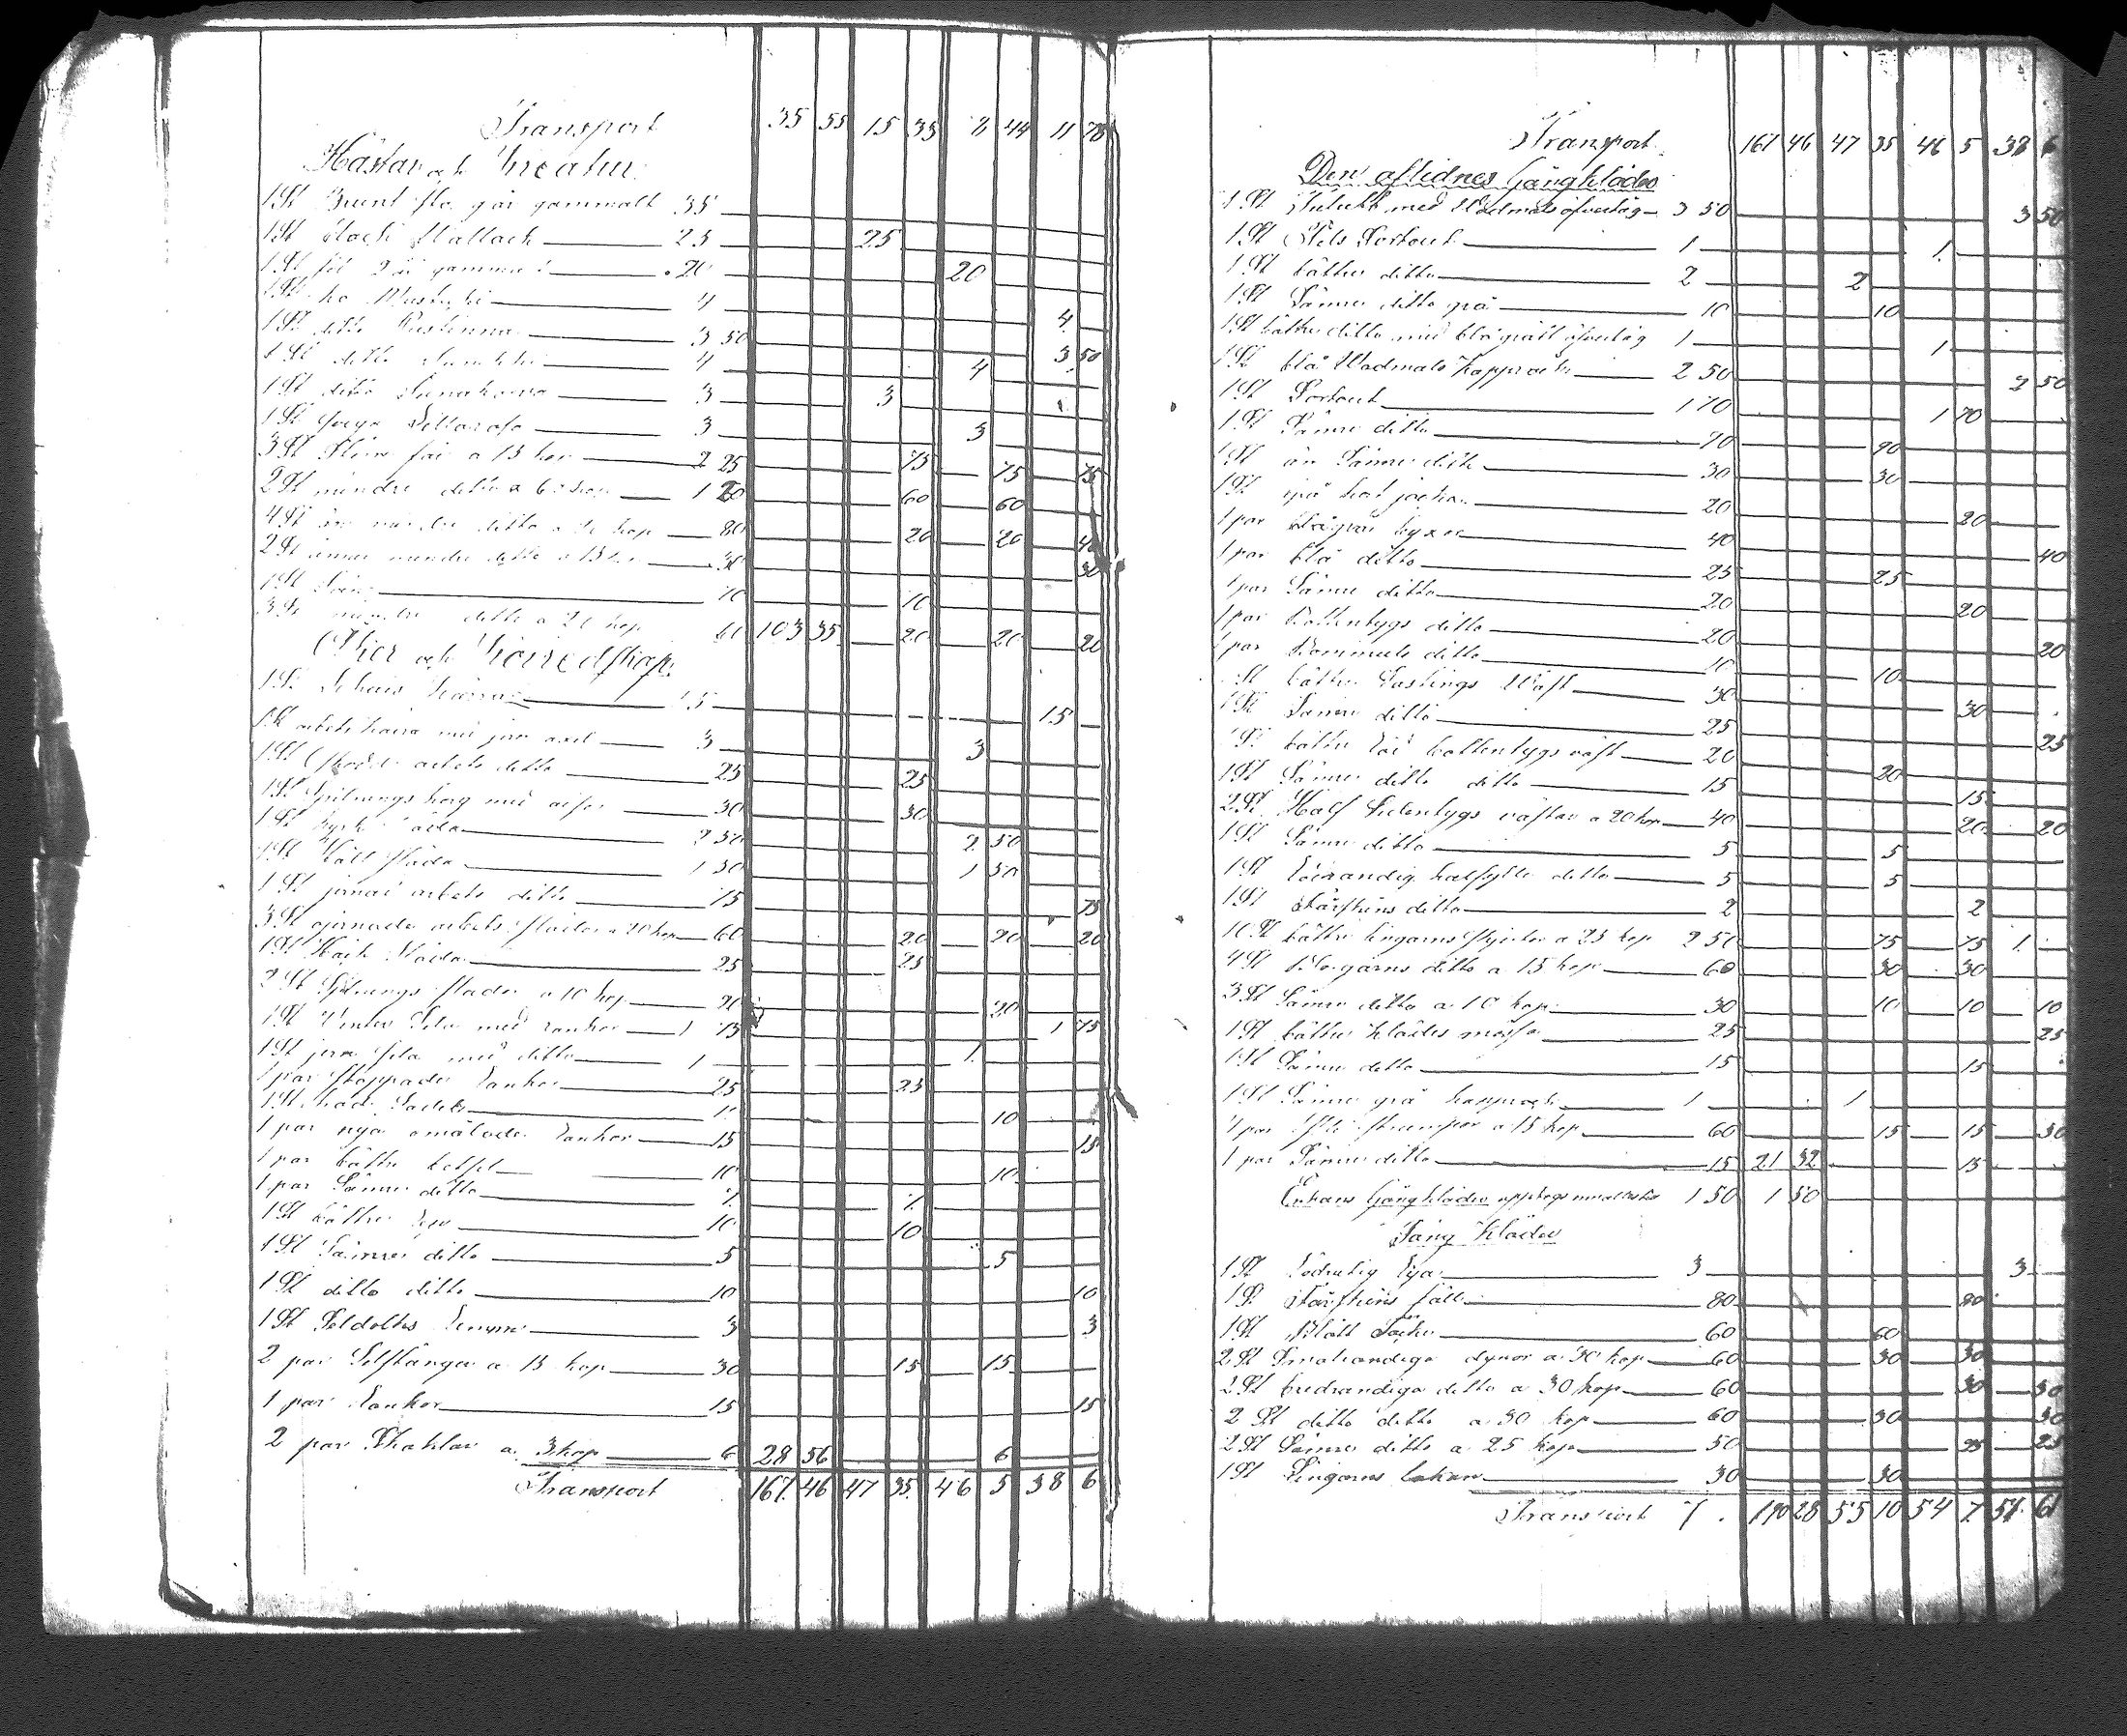 Transport 35 55 15 35 8 44 11 78
Hästar och Kreatur
1 St Brunt Sto 9 år gammalt 35
1 St Black Wallack 25 25
1 St föl 2 år gammal 20 20
1 St ko 4 4
1 St ditto 3 50 3 50
1 St ditto 4 4
1 St ditto 3 3
1 St qviga 3 3
3 St Större får a 75 kop 2 25 75 75 75
2 St mindre ditto a 60 kop 1 20 60 60
4 St än mindre ditto a 20 kop 80 20 20 40
2 St ännu mindre ditto a 15 kop 30 30
1 St 10 10
3 St mindre ditto a 20 kop 60 103 35 20 20 20
Åker och Körredskap
1 St Schäs kärra 15 15
1 St arbets kärra med jern axel 3 3
1 St arbets ditto 25 25
1 St Spilnings korg med 30 30
1 St kyrk släda 2 50 2 50
1 St Släda 1 50 1 50
1 St jernad arbets ditto 75 75
3 St ojernade arbets Slädor a 20 kop 60 20 20 20
1 St Släda 25 25
2 St Spilnings Slädor a 10 kop 20 20
1 St Vinter Sela med rankor 1 75 1 75
1 St Sela med ditto 1 1
1 par Stoppade Rankor 25 25
1 St Sadel 10 10
1 par nya omålade Rankor 15 15
1 par bättre betsel 10 10
1 par Sämre ditto 7 7
1 St bättre 10 10
1 St Sämre ditto 5 5
1 St ditto ditto 10 10
1 St 3 3
2 par Selstänger a 15 kop 30 15 15
1 par Rankor 15 15
2 par Skaklar a 3 kop 6 28 56 6
Transport 167 46 47 35 46 5 38 6
Transport 167 46 47 35 46 5 38 6
Den aflidnes Gångkläder
1 St med Wadmals öfverlag 3 50 3 50
1 St Pels Sortout 1 1
1 St bättre ditto 2 2
1 St Sämre ditto grå 10 10
1 St bättre ditto med blågrått öfverlag 1 1
1 St blå Wadmals kapprock 2 50 2 50
1 St Sortout 1 70 1 70
1 St Sämre ditto 70 70
1 St än Sämre ditto 30 30
1 St grå jacka 20 20
1 par blågrå byxor 40 40
1 par blå ditto 25 25
1 par Sämre ditto 20 20
1 par Bottentygs ditto 20 20
1 par Bommuls ditto 10 10
1 St bättre Wäst 30 30
1 St Sämre ditto 25 25
1 St bättre bottentygs väst 20 20
1 St Sämre ditto ditto 15 15
2 St Half Sidentygs västar a 20 kop 40 20 20
1 St Sämre ditto 5 5
1 St Rödrandig ditto 5 5
1 St Fårskins ditto 2 2
10 St bättre lingarns Skjortor a 25 kop 2 50 75 75 1
4 St Blogarns ditto a 15 kop 60 30 30
3 St Sämre ditto a 10 kop 30 10 10 10
1 St bättre klädes mössa 25 25
1 St Sämre ditto 15 15
1 St Sämre grå kapprock 1 1
4 par Strumpor a 15 kop 60 15 15 30
1 par Sämre ditto 15 21 32 15
Enkans Gångkläder 1 50 1 50
Säng Kläder
1 St Rödrutig Rya 3 3
1 St Fårskins fäll 80 80
1 St Blått Täcke 60 60
2 St Smalrandiga dynor a 30 kop 60 30 30
2 St bredrandiga ditto a 30 kop 60 30 30
2 St ditto ditto a 30 kop 60 30 30
2 St Sämre ditto a 25 kop 50 25 25
1 St Lingarns lakan 30 30
Transport 7 190 28 55 10 54 7 57 61